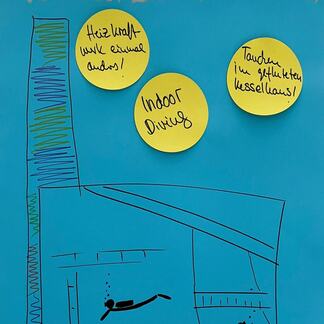 Heizkraft
werk einmal
anders!
Indoor
Diving
Tauchen
im gefluteten
Kesselhaus!